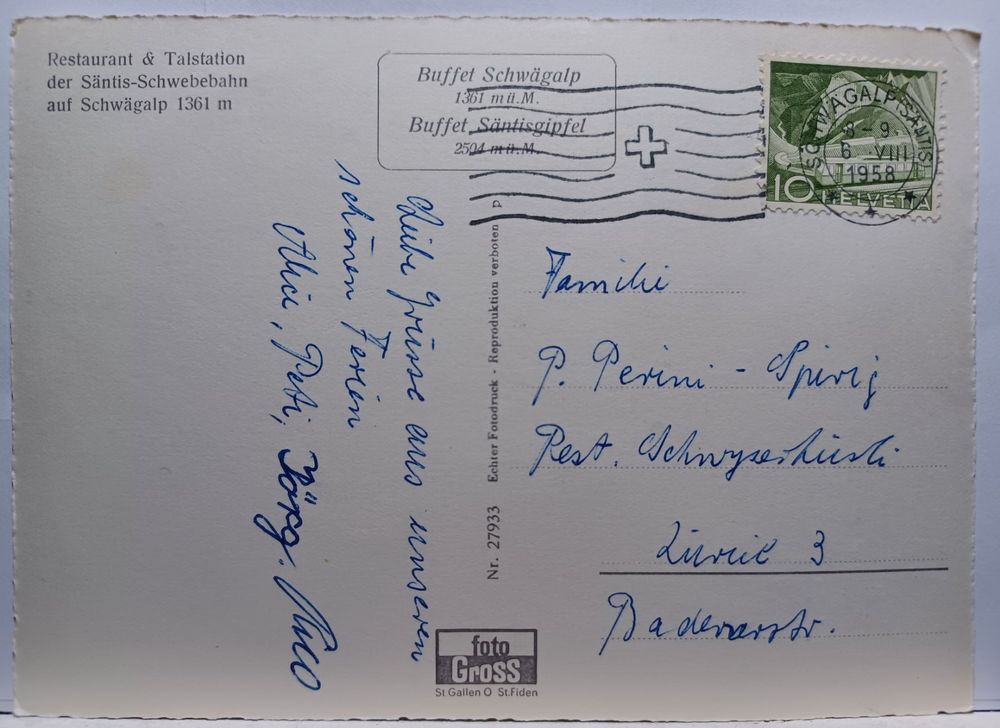 Restaurant & Talstation
der Säntis-Schwebebahn
auf Schwägalp 1361 m
Buffet Schwägalp
1361 m ü.M.
Buffet Säntisgipfel
2504 m ü.M.
10 HELVETIA
SCHWÄGALP (SÄNTIS)
8-9
6 VIII
1958
Liebe Grüsse aus unseren
schönen Ferien
Alice, Peti, Jörg.
Nr. 27933 Echter Fotodruck - Reproduktion verboten p
Familie
P. Perini - Spirig
Rest. Schwyzerhüsli
Zürich 3
Badenerstr.
foto
Gross
St Gallen O St.Fiden